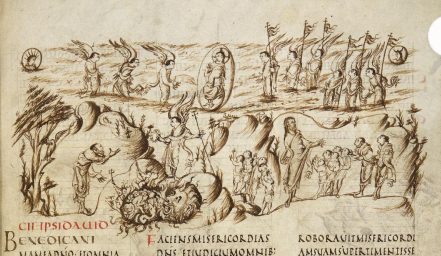 CII IPSI DAVID
BENEDICANI
MAMEADNO ETOMNIA
FACIENSMISERICORDIAS
DNS ETIUDICIUMOMNIB:
ROBORAUITMISERICORDI
AMSUAMSUPERTIMENTISSE